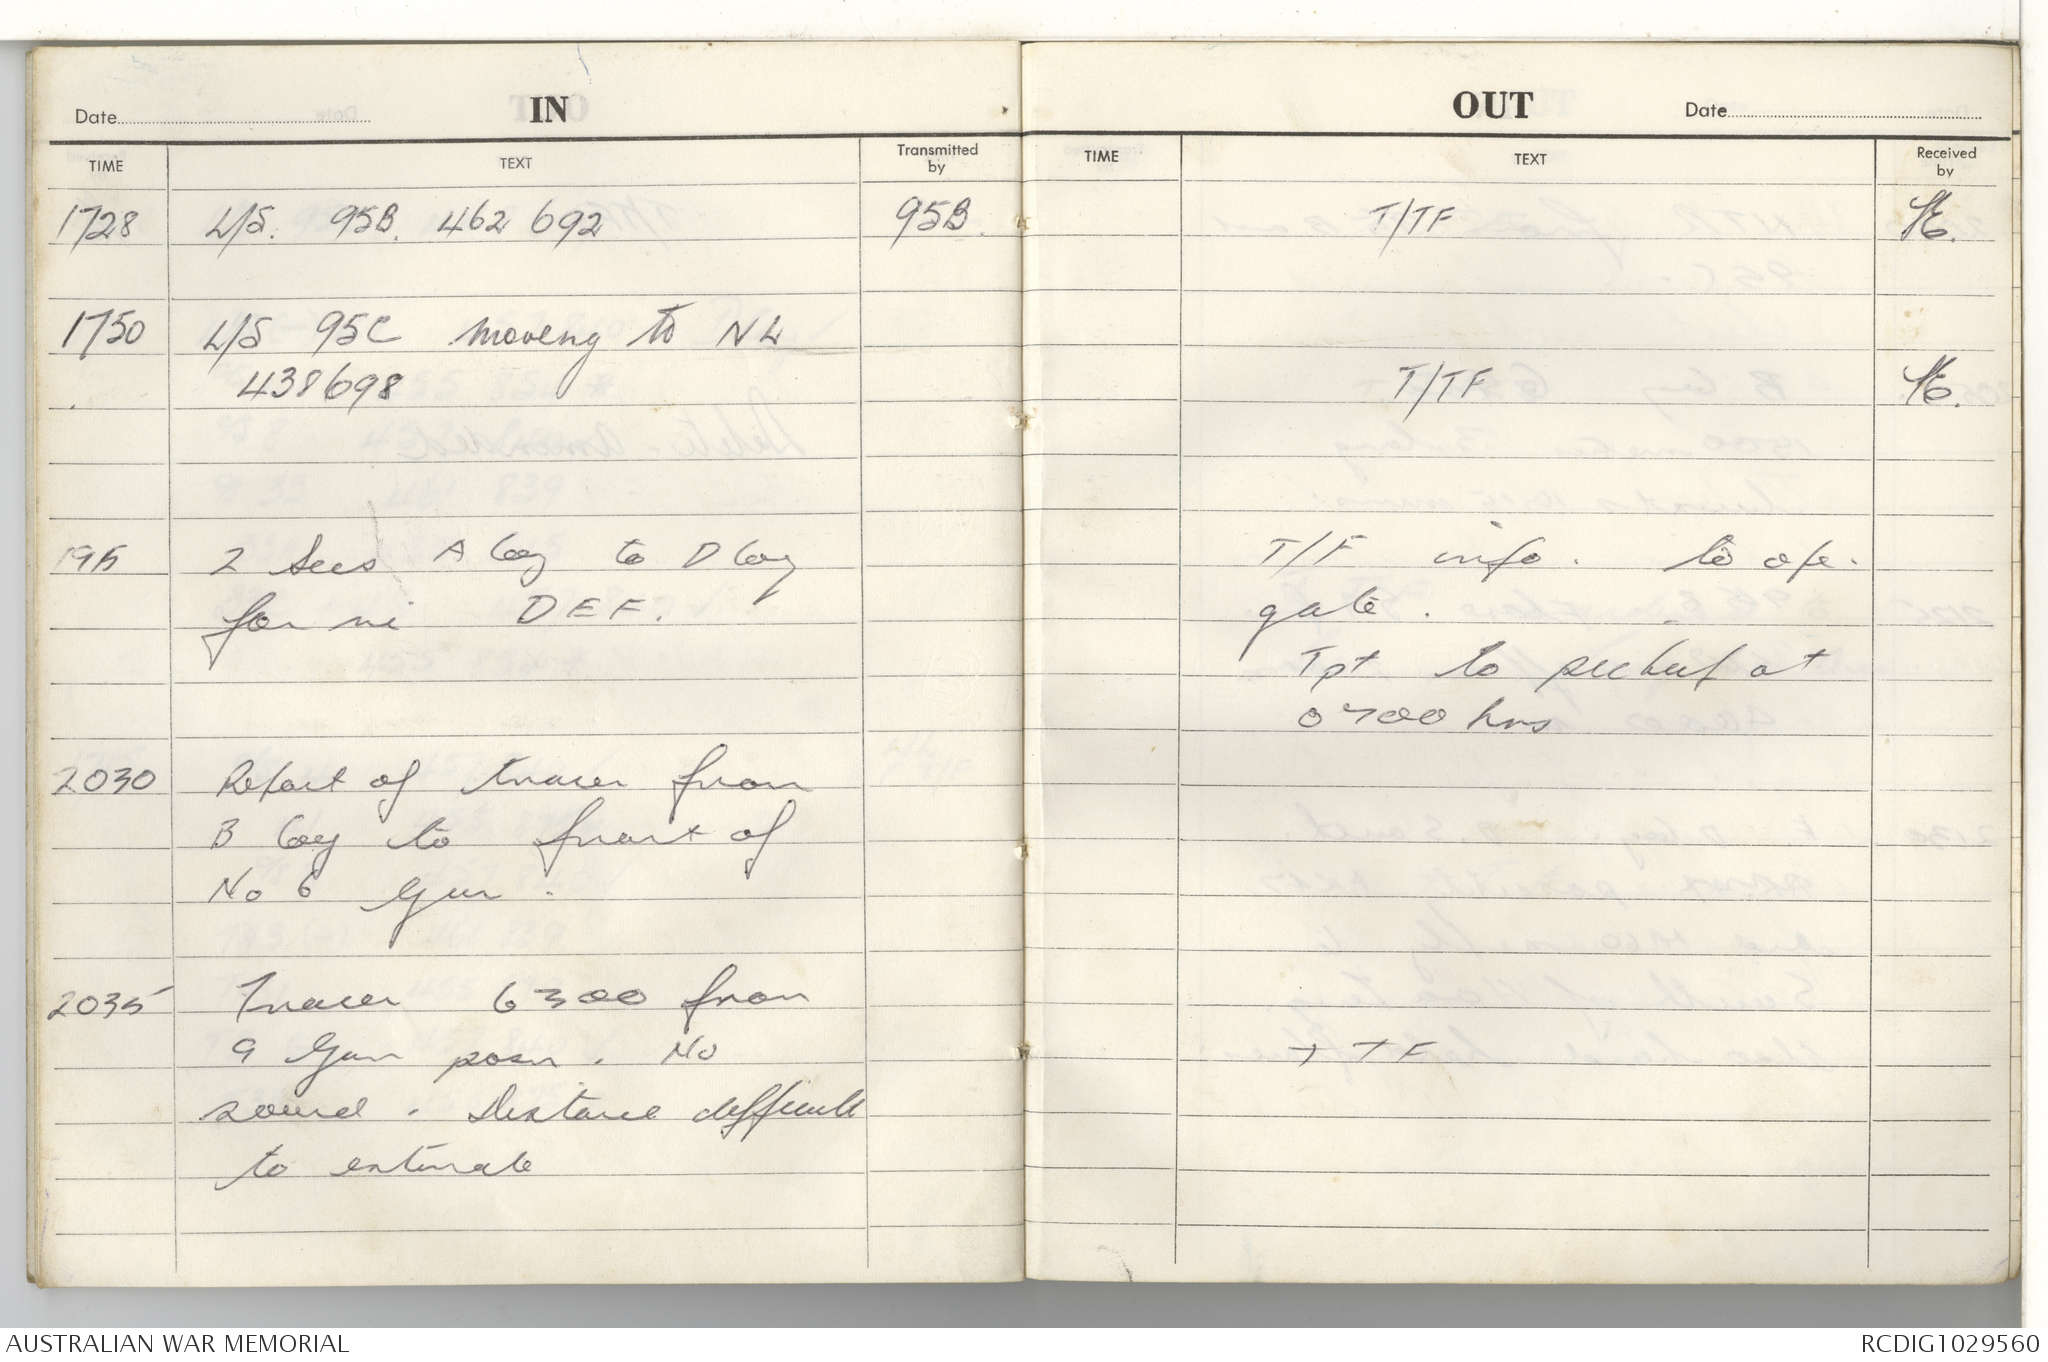 Date
IN
TIME
TEXT
Transmitted by
1728 L/S. 95B. 462 692 95B.
1750 L/S 95C moving to NL
438698
1915 2 Secs A Coy to D Coy
for ni DEF.
2030 Report of tracer from
B Coy to front of
No 6 Gun.
2035 Tracer 6300 from
9 Gun posn. No
sound. Distance difficult
to estimate
OUT
Date
TIME
TEXT
Received by
T/TF
T/TF
T/F info. to ope.
gate.
Tpt to pickup at
0700 hrs
T TF
AUSTRALIAN WAR MEMORIAL
RCDIG1029560